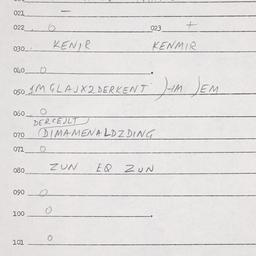 021 —
022 0 023 +
030 KENIR KENMIR
040 0
050 1MGLAJX2DERKENT )-1M )EM
060 0
070 DIMAMENALDZDING
071 0
080 ZUN EQ ZUN
090 0
100 0
101 0